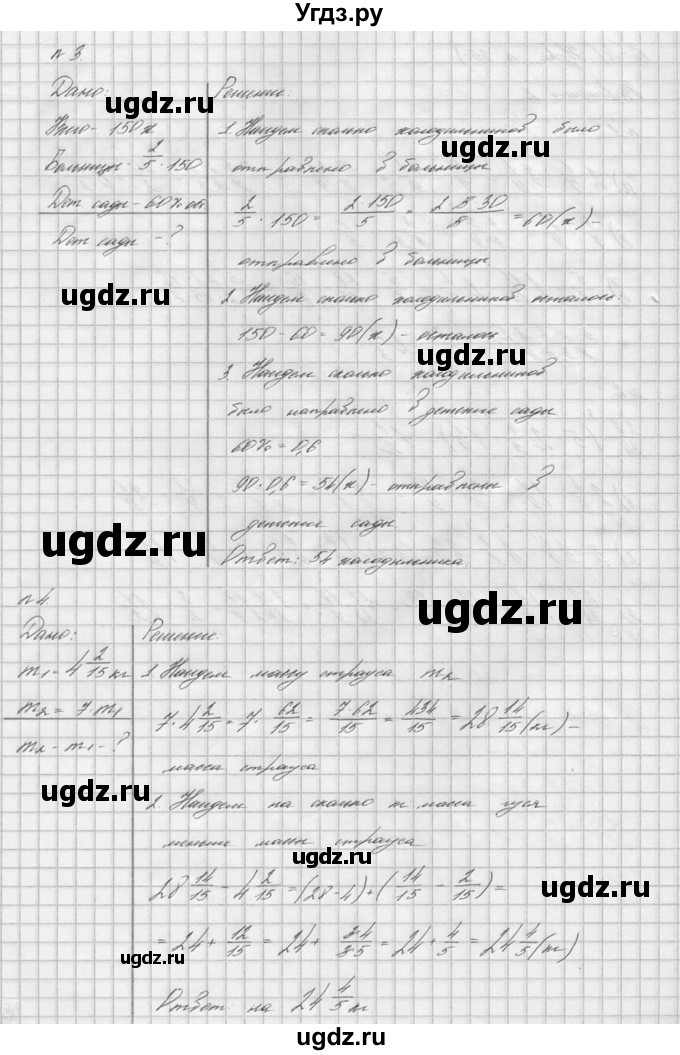 Угдз.ру
n 3.
Дано:
Всего - 150 х
Больницы - 2/5 · 150
Дет сады - 60% ост.
Дет сады - ?
Решение:
1. Найдем сколько холодильников было
отправлено в больницы
2/5 · 150 = 2·150/5 = 2·5·30/5 = 60(х) -
отправлено в больницы
2. Найдем сколько холодильников осталось:
150 - 60 = 90(х) - осталось
3. Найдем сколько холодильников
было направлено в детские сады
60% = 0,6
90 · 0,6 = 54(х) - отправлены в
детские сады.
Ответ: 54 холодильника
n 4.
Дано:
m₁ = 4 2/15 кг
m₂ = 7 · m₁
m₂ - m₁ - ?
Решение:
1. Найдем массу страуса m₂
7 · 4 2/15 = 7 · 62/15 = 7·62/15 = 434/15 = 28 14/15 (кг) -
масса страуса
2. Найдем на сколько масса гуся
меньше массы страуса
28 14/15 - 4 2/15 = (28 - 4) + (14/15 - 2/15) =
= 24 + 12/15 = 24 + 3·4/3·5 = 24 + 4/5 = 24 4/5 (кг)
Ответ: на 24 4/5 кг
ugdz.ru
ugdz.ru
ugdz.ru
ugdz.ru
ugdz.ru
ugdz.ru
ugdz.ru
ugdz.ru
ugdz.ru
ugdz.ru
ugdz.ru
ugdz.ru
ugdz.ru
ugdz.ru